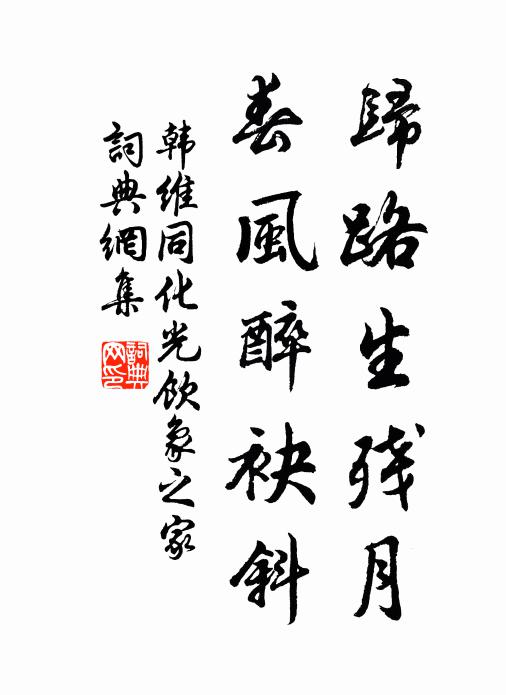 歸路生残月
春風醉袂斜
韩維同化光飲象之家
詞典網集
詞典網印